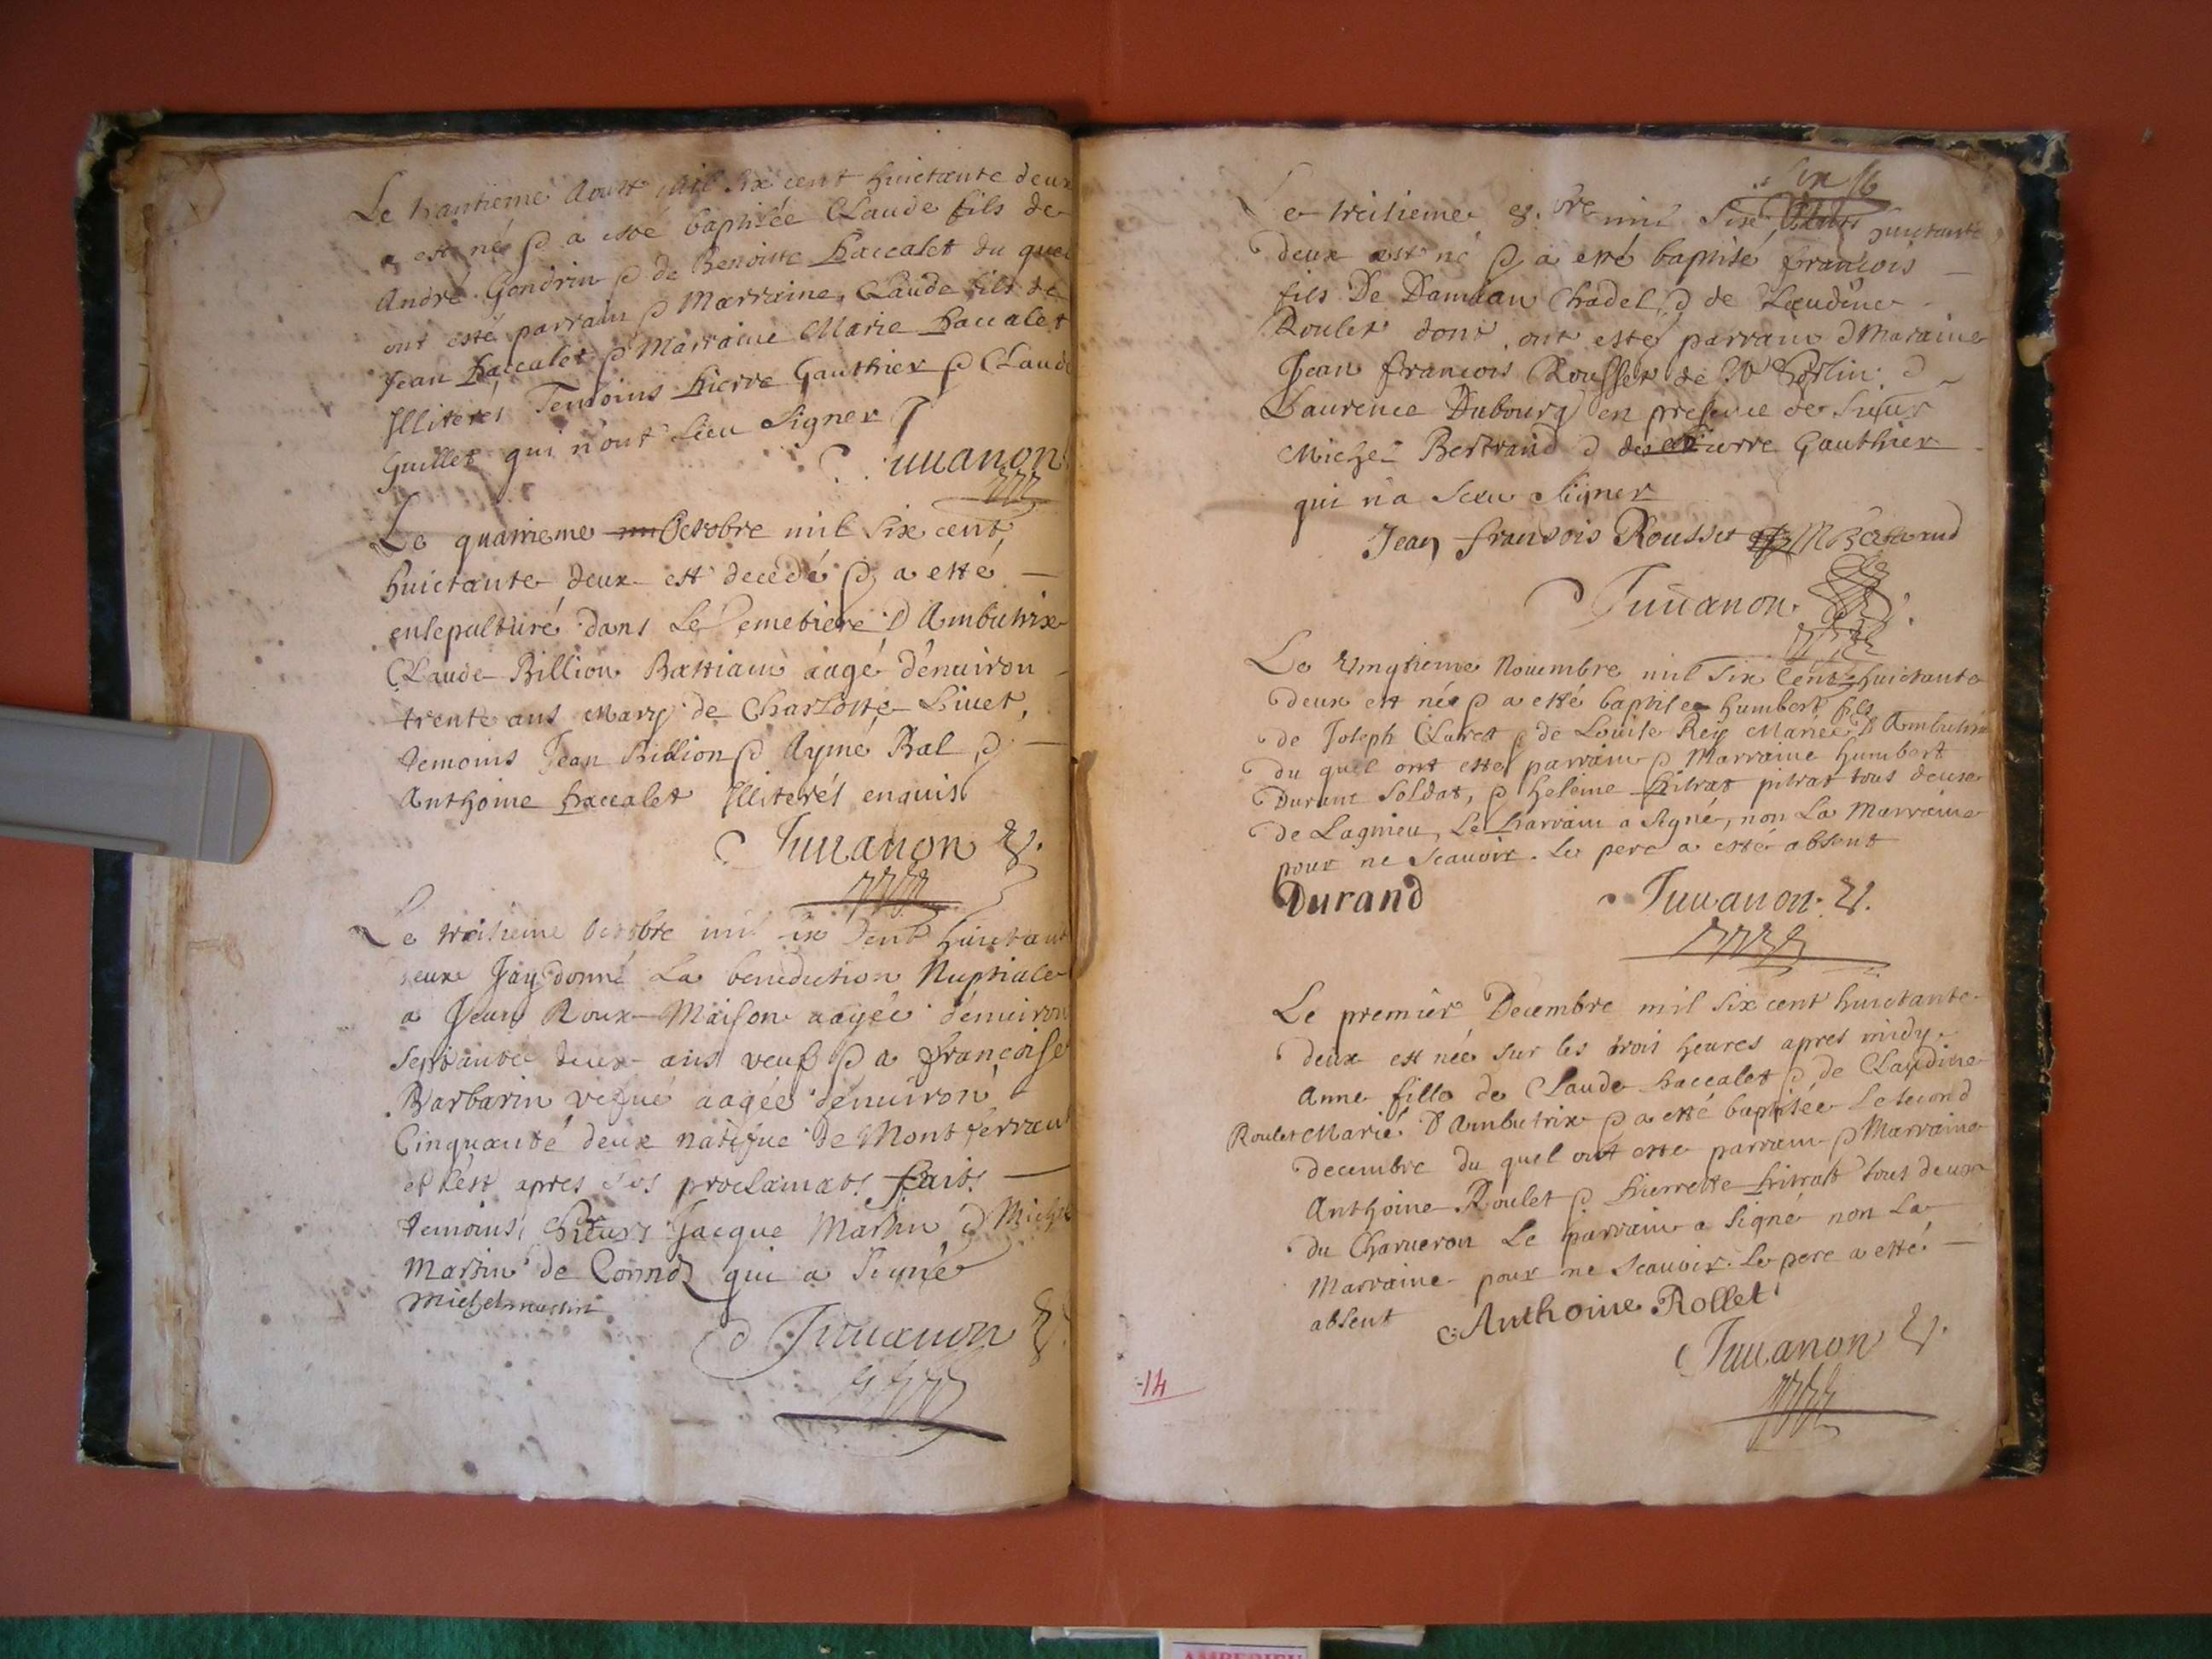 Le trantieme Aoust mil six cent huictante deux
est né & a esté baptisée Claude fils de
André Gondrin & de Benoiste Paccalet du quel
ont esté parrain & Marraine, Claude fils de
Jean Paccalet & Marraine Marie Paccalet
Illiterés Temoins Pierre Gauthier & Claude
Guillet qui n'ont sceu signer
Juuanon
Le quatrieme Octobre mil six cent
huictante deux est decedé & a esté
ensepulturé dans Le Cemetiere D Ambutrix
Claude Billion Bastian aagé d'enuiron
trente ans Mary de Charlotte Liuet,
temoins Jean Billion & Aymé Bal &
Anthoine Paccalet Illiterés enquis
Juuanon
Le treisieme Octobre mil six cent huictante
deux J'ay donné La benediction Nuptiale
a Jean Roux Maison aagée d'enuiron
septante deux ans veuf & a Françoise
Barbarin vefue aagée d'enuiron
Cinquante deux natifue de Montferran
et c'est apres les proclamats faits
temoins, Sieurs Jacque Martin & Michel
Martin de qui a Signé
Michel martin
Juuanon
six
Le treisieme 8.bre mil Six Cents huictante
deux est né & a esté baptisé François
fils De Damian Chadel & de Claudine
Roulet dont ont esté parrain & Maraine
Jean François Rousset de St & 
Laurence Dubourg en presence de Sieur
Michel Bertrand & de Pierre Gauthier
qui n'a Sceu Signer
Jean fransois Rousset M Bertrand
Juuanon
Le Vingtieme Nouembre mil Six Cent huictante
deux est née & a esté baptisee humbert fils
de Joseph Claret & de Louise Rey Mariés D Ambutrix
du quel ont esté parrain & Marraine humbert
Durant Soldat, & heleine pitrat tous deux
de Lagnieu, Le Parrain a signé, non La Marraine
pour ne Scauoir. Le pere a esté absent
Durand Juuanon
Le premier Decembre mil Six cent huictante
deux est née sur les trois heures apres midy
Anne fille de Claude Paccalet & de Claudine
Roulet Mariés D Ambutrix & a esté baptisée Le second
decembre du quel ont esté parrain & Marraine
Anthoine Roulet & Pierrette Pitrat tous deux
du Charueron Le parrain a Signé non La
Marraine pour ne Scauoir. Le pere a esté
absent Anthoine Rollet
Juuanon
14